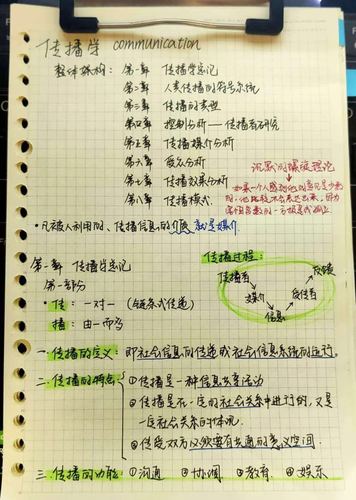 传播学 communication
整体架构：第一章 传播学总论
第二章 人类传播的符号系统
第三章 传播的类型
第四章 控制分析——传播者研究
第五章 传播媒介分析
第六章 受众分析
第七章 传播效果分析
第八章 传播模式
沉默的螺旋理论
如果一个人感到他的意见是少数
的，他比较不会表达出来，因为
多数的一方
·凡被人利用的、传播信息的介质就是媒介.
第一章 传播学总论
第一部分
·传：一对一（链条式传递）
播：由一而多
传播过程：
传播者
媒介
信息
受传者
反馈
一.传播的定义：即社会信息的传递或社会信息系统的运行。
二.传播的特点：①传播是一种信息共享活动
②传播是在一定的社会关系中进行的，又是
一定社会关系的体现.
③传受双方必须要有共通的意义空间.
三.传播的功能：①沟通 ②协调 ③教育 ④娱乐